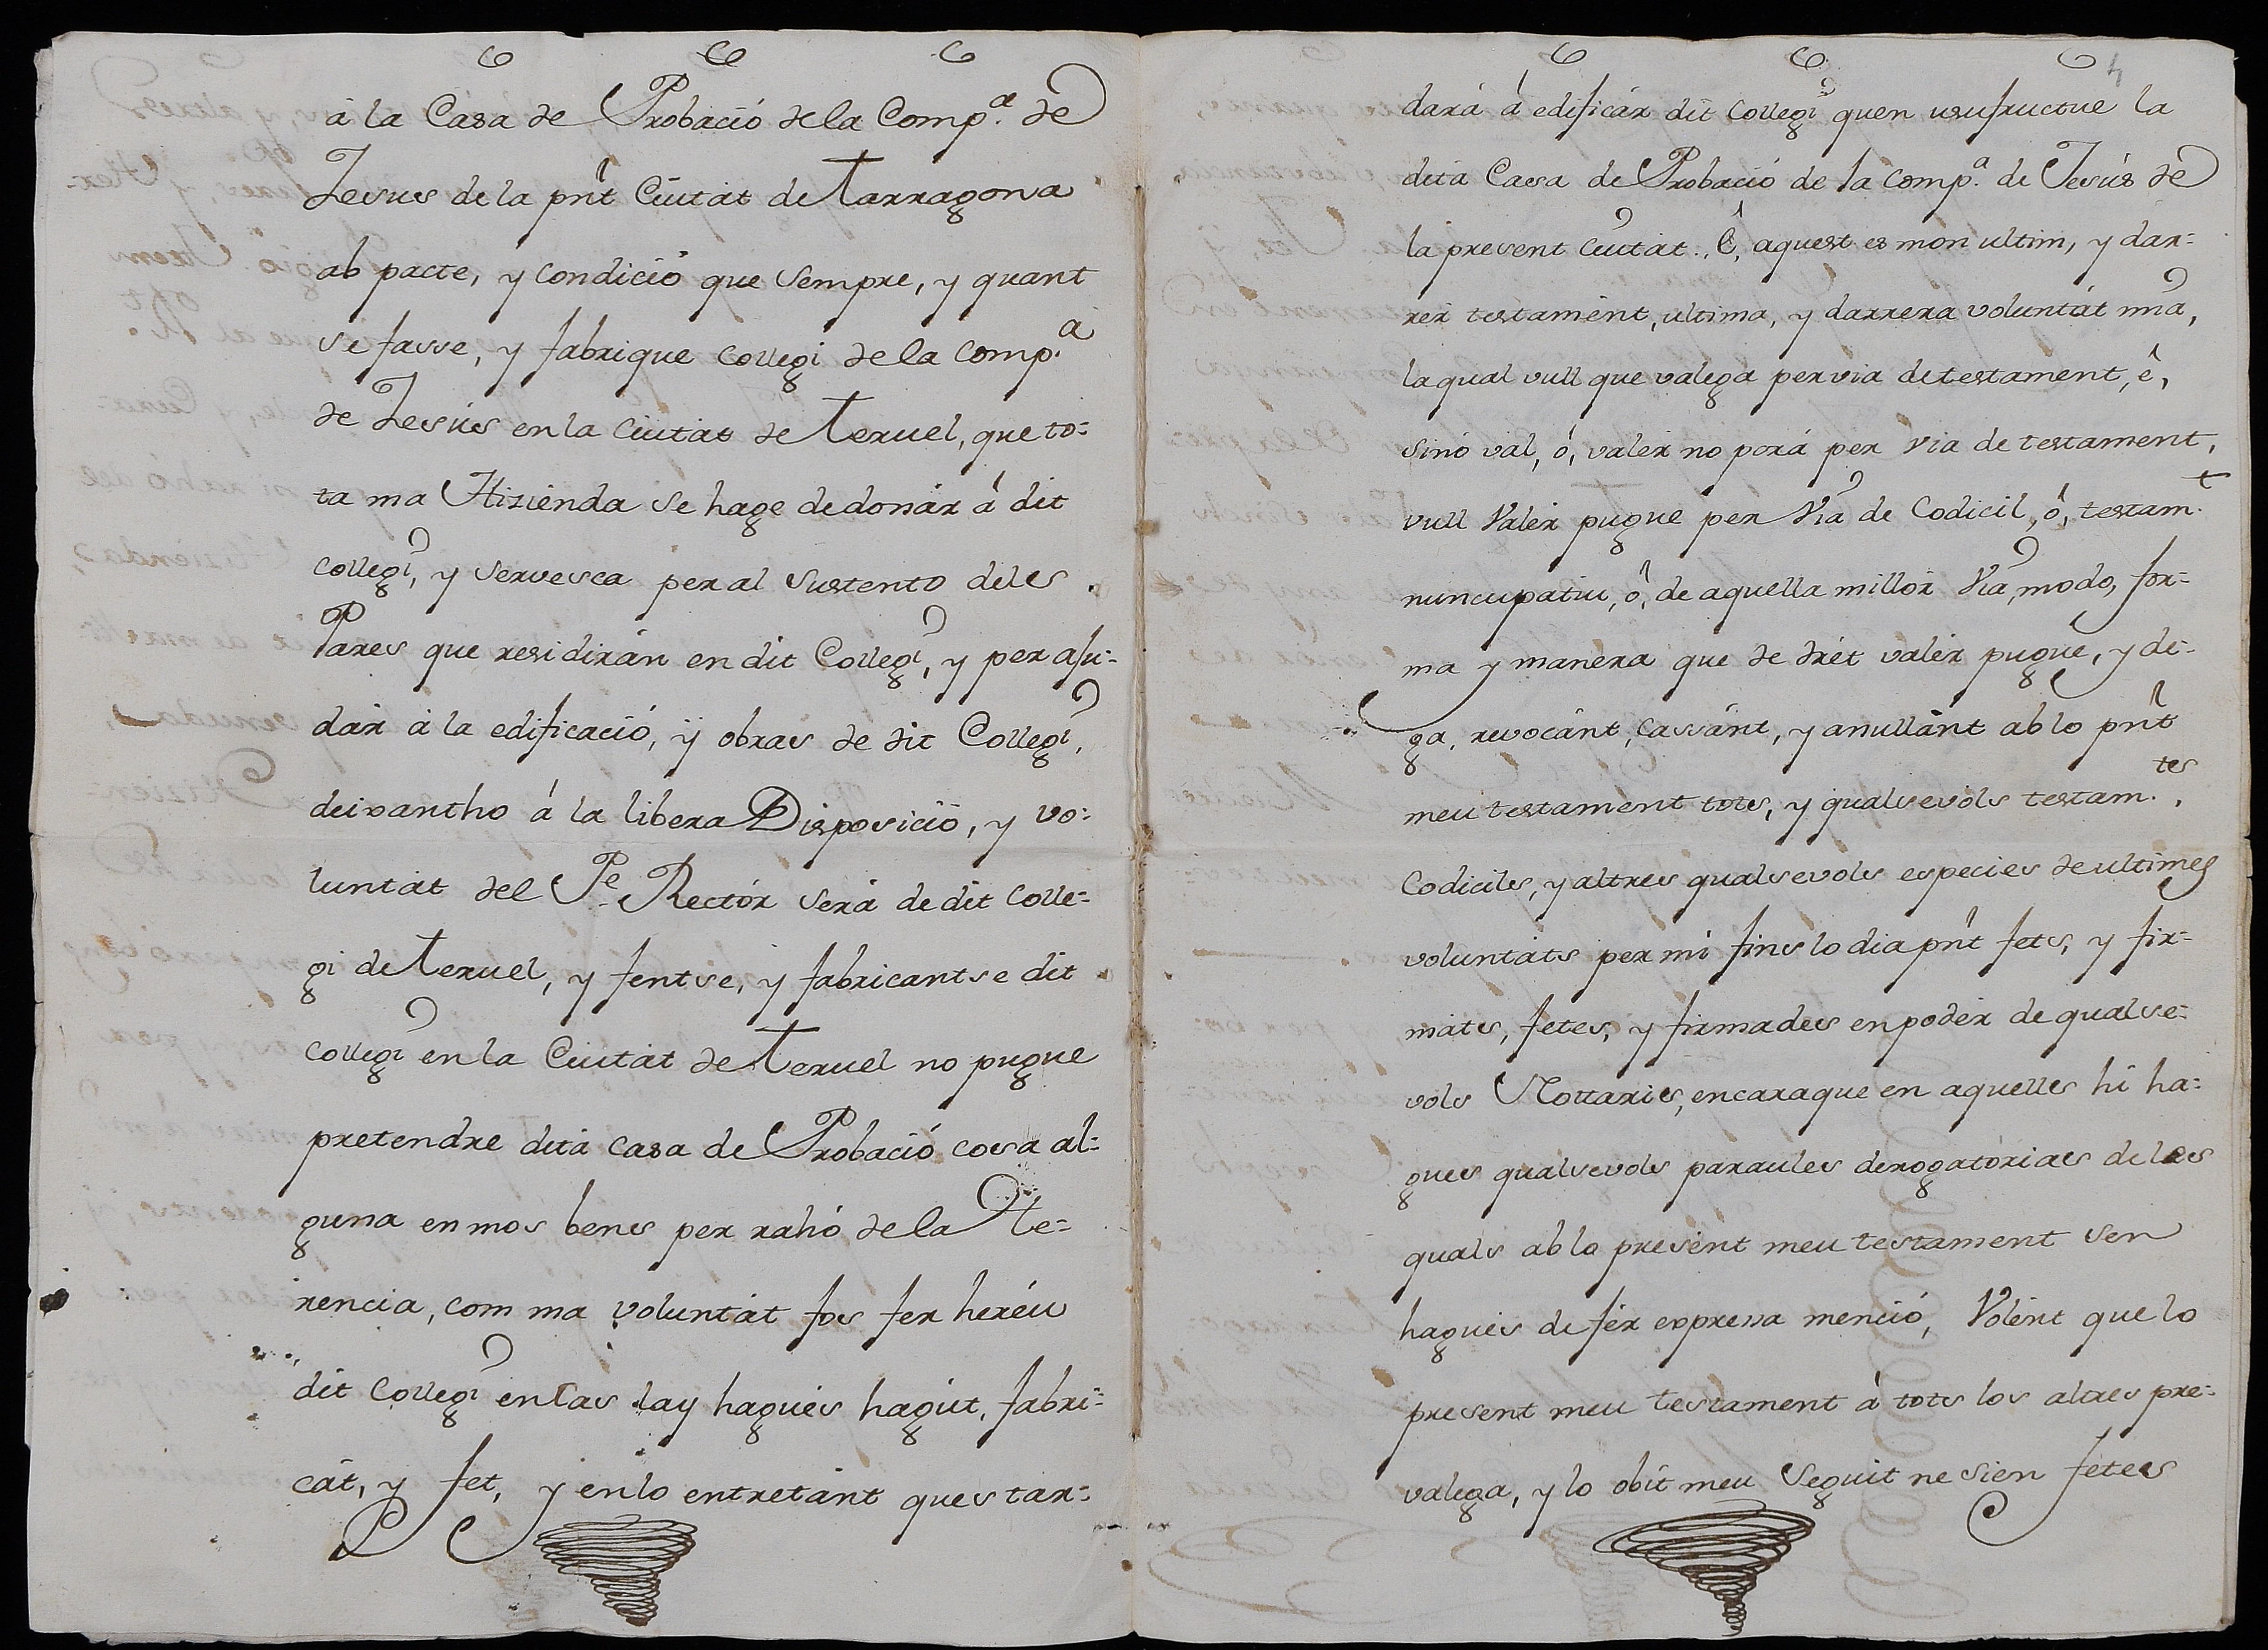 à la Casa de Probació de la Comp.ª de
Jesus de la pn̂t Ciutat de Tarragona
ab pacte, y condició que sempre, y quant
se fasse, y fabrique Collegi de la Comp.ª
de Jesús en la Ciutat de Teruel, que to=
ta ma Hizienda se hage de donár á dit
Collegi, y servesca per al sustento dels
Pares que residirán en dit Collegi, y per aju=
dár à la edificació, ÿ obras de dit Collegi,
deixantho á la libera Disposició, y vo=
luntát del P.e Rectór será de dit Colle=
gi de Teruel, y fentse, y fabricantse dit
Collegi en la Ciutat de Teruel no pugue
pretendre dita casa de Probació cosa al=
guna en mos bens per rahó de la He=
rencia, com ma voluntát fos fer heréu
dit Collegi en Cas lay hagués hagút, fabri=
cát, y fet, y en lo entretánt ques tar=
4
dará á edificár dit Collegi quen usufructue la
dita Casa de Probació de la Comp.ª de Jesús de
la present Ciutat. Ê, aquest es mon ultim, y dar=
rer testament, ultima, y darrera voluntát mia,
la qual vull que valega per via de testament, ê,
sinó val, ó, valér no porá per via de testament,
vull Valér pugue per Via de Codicil, ô, testam.t
nuncupatiu, ô, de aquella millór Via, modo, for=
ma y manera que de drét valér pugue, y de=
ga, revocánt, Cassánt, y anullánt ab lo pn̂t
meu testament tots, y qualsevols testam.tes,
Codicils, y altres qualsevols especies de ultimes
voluntáts per mi fins lo dia pn̂t fets, y fir=
máts, fetes, y firmades en podér de qualse=
vols Nottaris, encaraque en aquelles hi ha=
gues qualsevols paraules derogatòrias de les
quals ab lo present meu testament sen
hagués de fér expressa menció, Volént que lo
present meu testament á tots los altres pre=
valega, y lo obit meu Seguit ne sien fetes